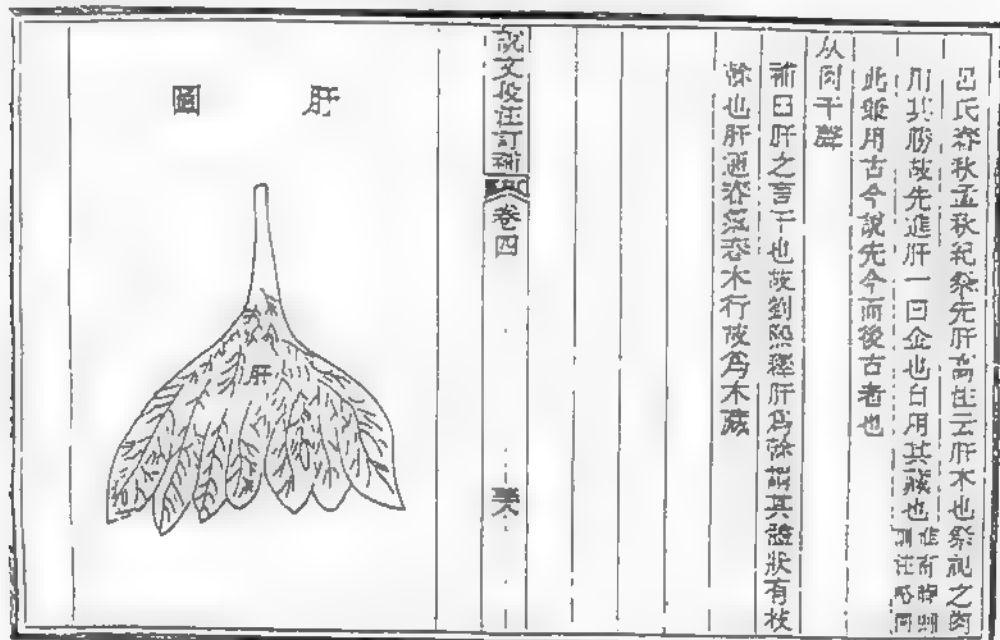 呂氏春秋孟秋紀祭先肝高注云肝木也祭祀之肉
用其勝故先進肝一曰金也自用其藏也淮南時則訓注略同
此雖用古今說先今而後古者也
从肉干聲
補曰肝之言干也故劉熙釋肝爲榦謂其體狀有枝
榦也肝通春氣春木行故爲木藏
說文段注訂補
卷四
肝圖
肝